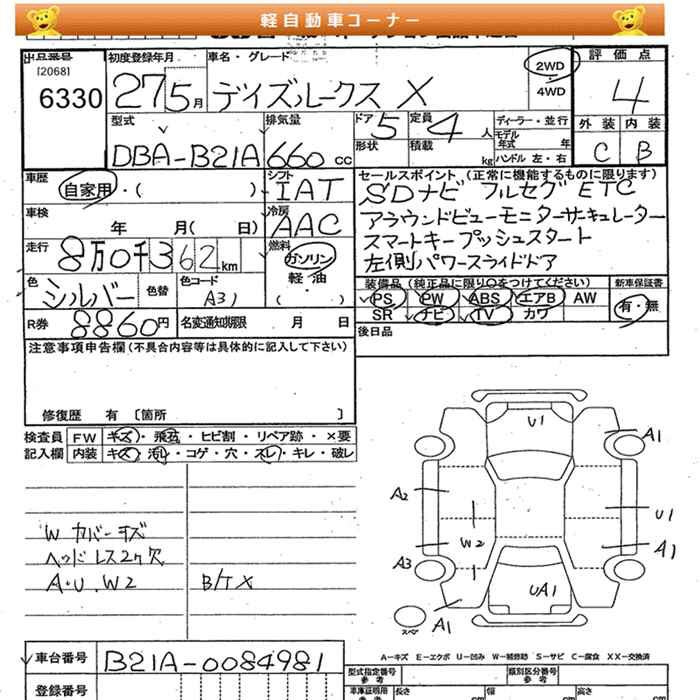 軽自動車コーナー
出品番号 初度登録年月 車名・グレード 2WD 評価点
[2068]
6330 27 5月 デイズルークス X ・4WD 4
型式 排気量 ドア 5 定員 4人 ディーラー・並行 外装 内装
モデル年式 年
DBA-B21A 660cc 形状 積載 kg ハンドル 左・右 C B
車歴 シフト セールスポイント (正常に機能するものに限ります)
自家用・( ) IAT SDナビ フルセグ ETC
車検 冷房 アラウンドビューモニター サーキュレーター
年 月( 日) AAC スマートキー プッシュスタート
走行 燃料 左側パワースライドドア
8万0千362km ガソリン
色 色替 色コード 軽・油 装備品 (純正品に限り○をつけてください) 新車保証書
シルバー A31 ・( ) PS PW ABS エアB AW 有・無
R券 8860円 名変通知期限 月 日 SR ナビ TV カワ
注意事項申告欄(不具合内容等は具体的に記入して下さい) 後日品
修復歴 有 〔箇所 〕
検査員 FW キズ・飛石・ヒビ割・リペア跡・×要
記入欄 内装 キズ・汚れ・コゲ・穴・スレ・キレ・破レ
U1
A1
A2
U1
W カバーキズ
W2
A1
ヘッドレス2ヶ欠
A3
A・U.W2 B/TX
UA1
A1
スペア
A-キズ E-エクボ U-凹み W-補修跡 S-サビ C-腐食 XX-交換済
車台番号 B21A-0084981
型式指定番号 参考 類別区分番号 参考
登録番号 車庫証明用 参考 長さ cm 幅 cm 高さ cm